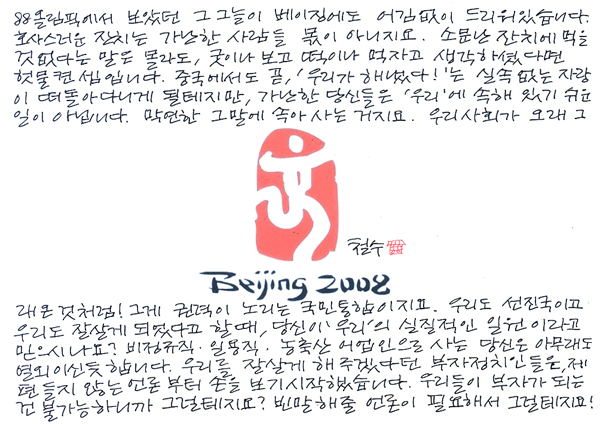 88올림픽에서 보았던 그 그늘이 베이징에도 어김없이 드리워있습니다.
호사스러운 잔치는 가난한 사람들 몫이 아니지요. 소문난 잔치에 먹을
것없다는 말은 몰라도, 굿이나 보고 떡이나 먹자고 생각하셨다면
헛물켠 셈입니다. 중국에서도 곧, '우리가 해냈다!'는 실속 없는 자랑
이 떠돌아다니게 될테지만, 가난한 당신들은 '우리'에 속해 있기 쉬운
일이 아닙니다. 막연한 그말에 속아 사는 거지요. 우리사회가 오래 그
철수
Beijing 2008
래온 것처럼! 그게 권력이 노리는 국민통합이지요. 우리도 선진국이고
우리도 잘살게 되었다고 할 때, 당신이 '우리'의 실질적인 일원이라고
믿으시나요? 비정규직·일용직·농축산 어업인으로 사는 당신은 아무래도
열외이신듯 합니다. 우리를 잘살게 해주겠다던 부자정치인들은, 제
편들지 않는 언론부터 손을 보기시작했습니다. 우리들이 부자가 되는
건 불가능하니까 그럴테지요? 빈말해줄 언론이 필요해서 그럴테지요!